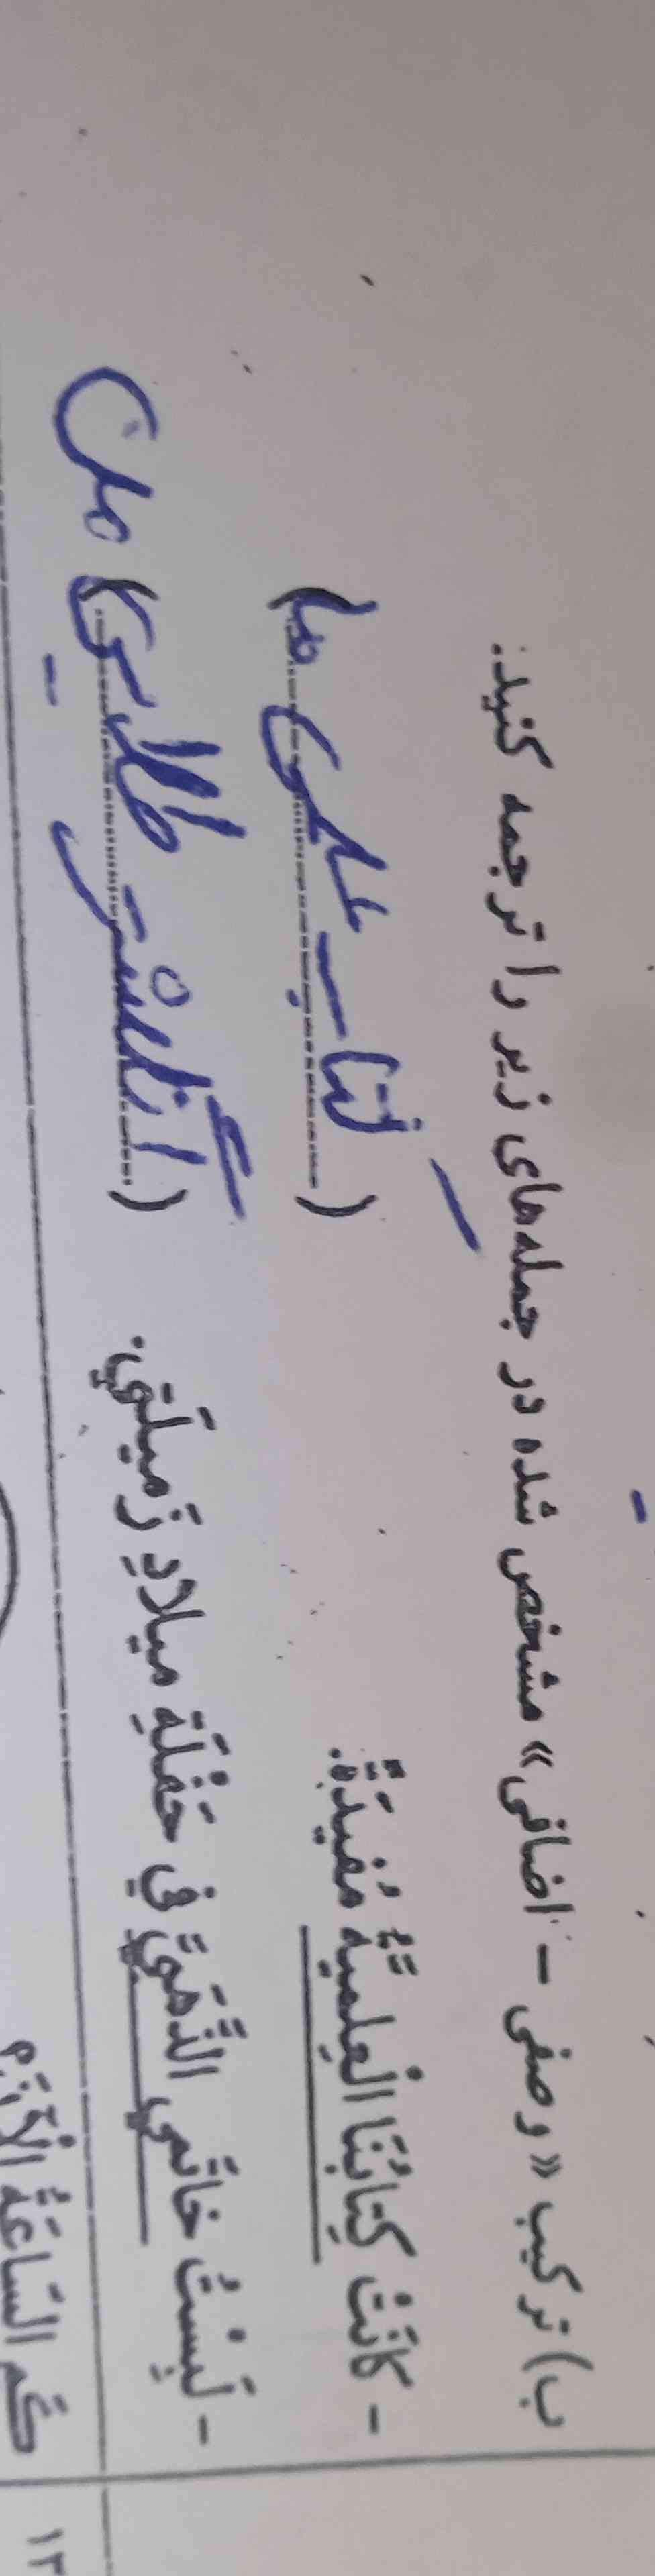 ب) ترکیب «وصفی - اضافی» مشخص شده در جمله‌های زیر را ترجمه کنید:
- کانَتْ کِتابُنَا الْعِلمیَّةُ مُفیدَةً. (کتاب علمی ما)
- لَبِسْتُ خاتَمي الذَّهَبيَّ في حَفْلَةِ میلادِ زَمیلَتي. (انگشتر طلایی من)
۱۳
کَم السّاعَةُ الْآنَ؟